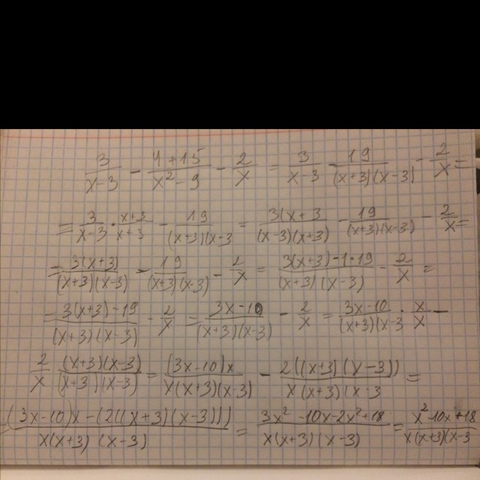 3/(x-3) - (4+15)/(x²-9) - 2/x = 3/(x-3) - 19/((x+3)(x-3)) - 2/x =
= 3/(x-3) · (x+3)/(x+3) - 19/((x+3)(x-3) = 3(x+3/((x-3)(x+3)) - 19/((x+3)(x-3)) - 2/x =
= 3(x+3)/((x+3)(x-3)) - 19/((x+3)(x-3)) - 2/x = (3(x+3)-1·19)/((x+3)(x-3)) - 2/x =
= (3(x+3)-19)/((x+3)(x-3)) - 2/x = (3x-10)/((x+3)(x-3)) - 2/x = (3x-10)/((x+3)(x-3) · x/x -
2/x · ((x+3)(x-3))/((x+3)(x-3)) = (3x-10)x/(x(x+3)(x-3)) - 2((x+3)(x-3))/(x(x+3)(x-3) =
((3x-10)x-(2((x+3)(x-3))))/(x(x+3)(x-3)) = (3x²-10x-2x²+18)/(x(x+3)(x-3)) = (x²-10x+18)/(x(x+3)(x-3)